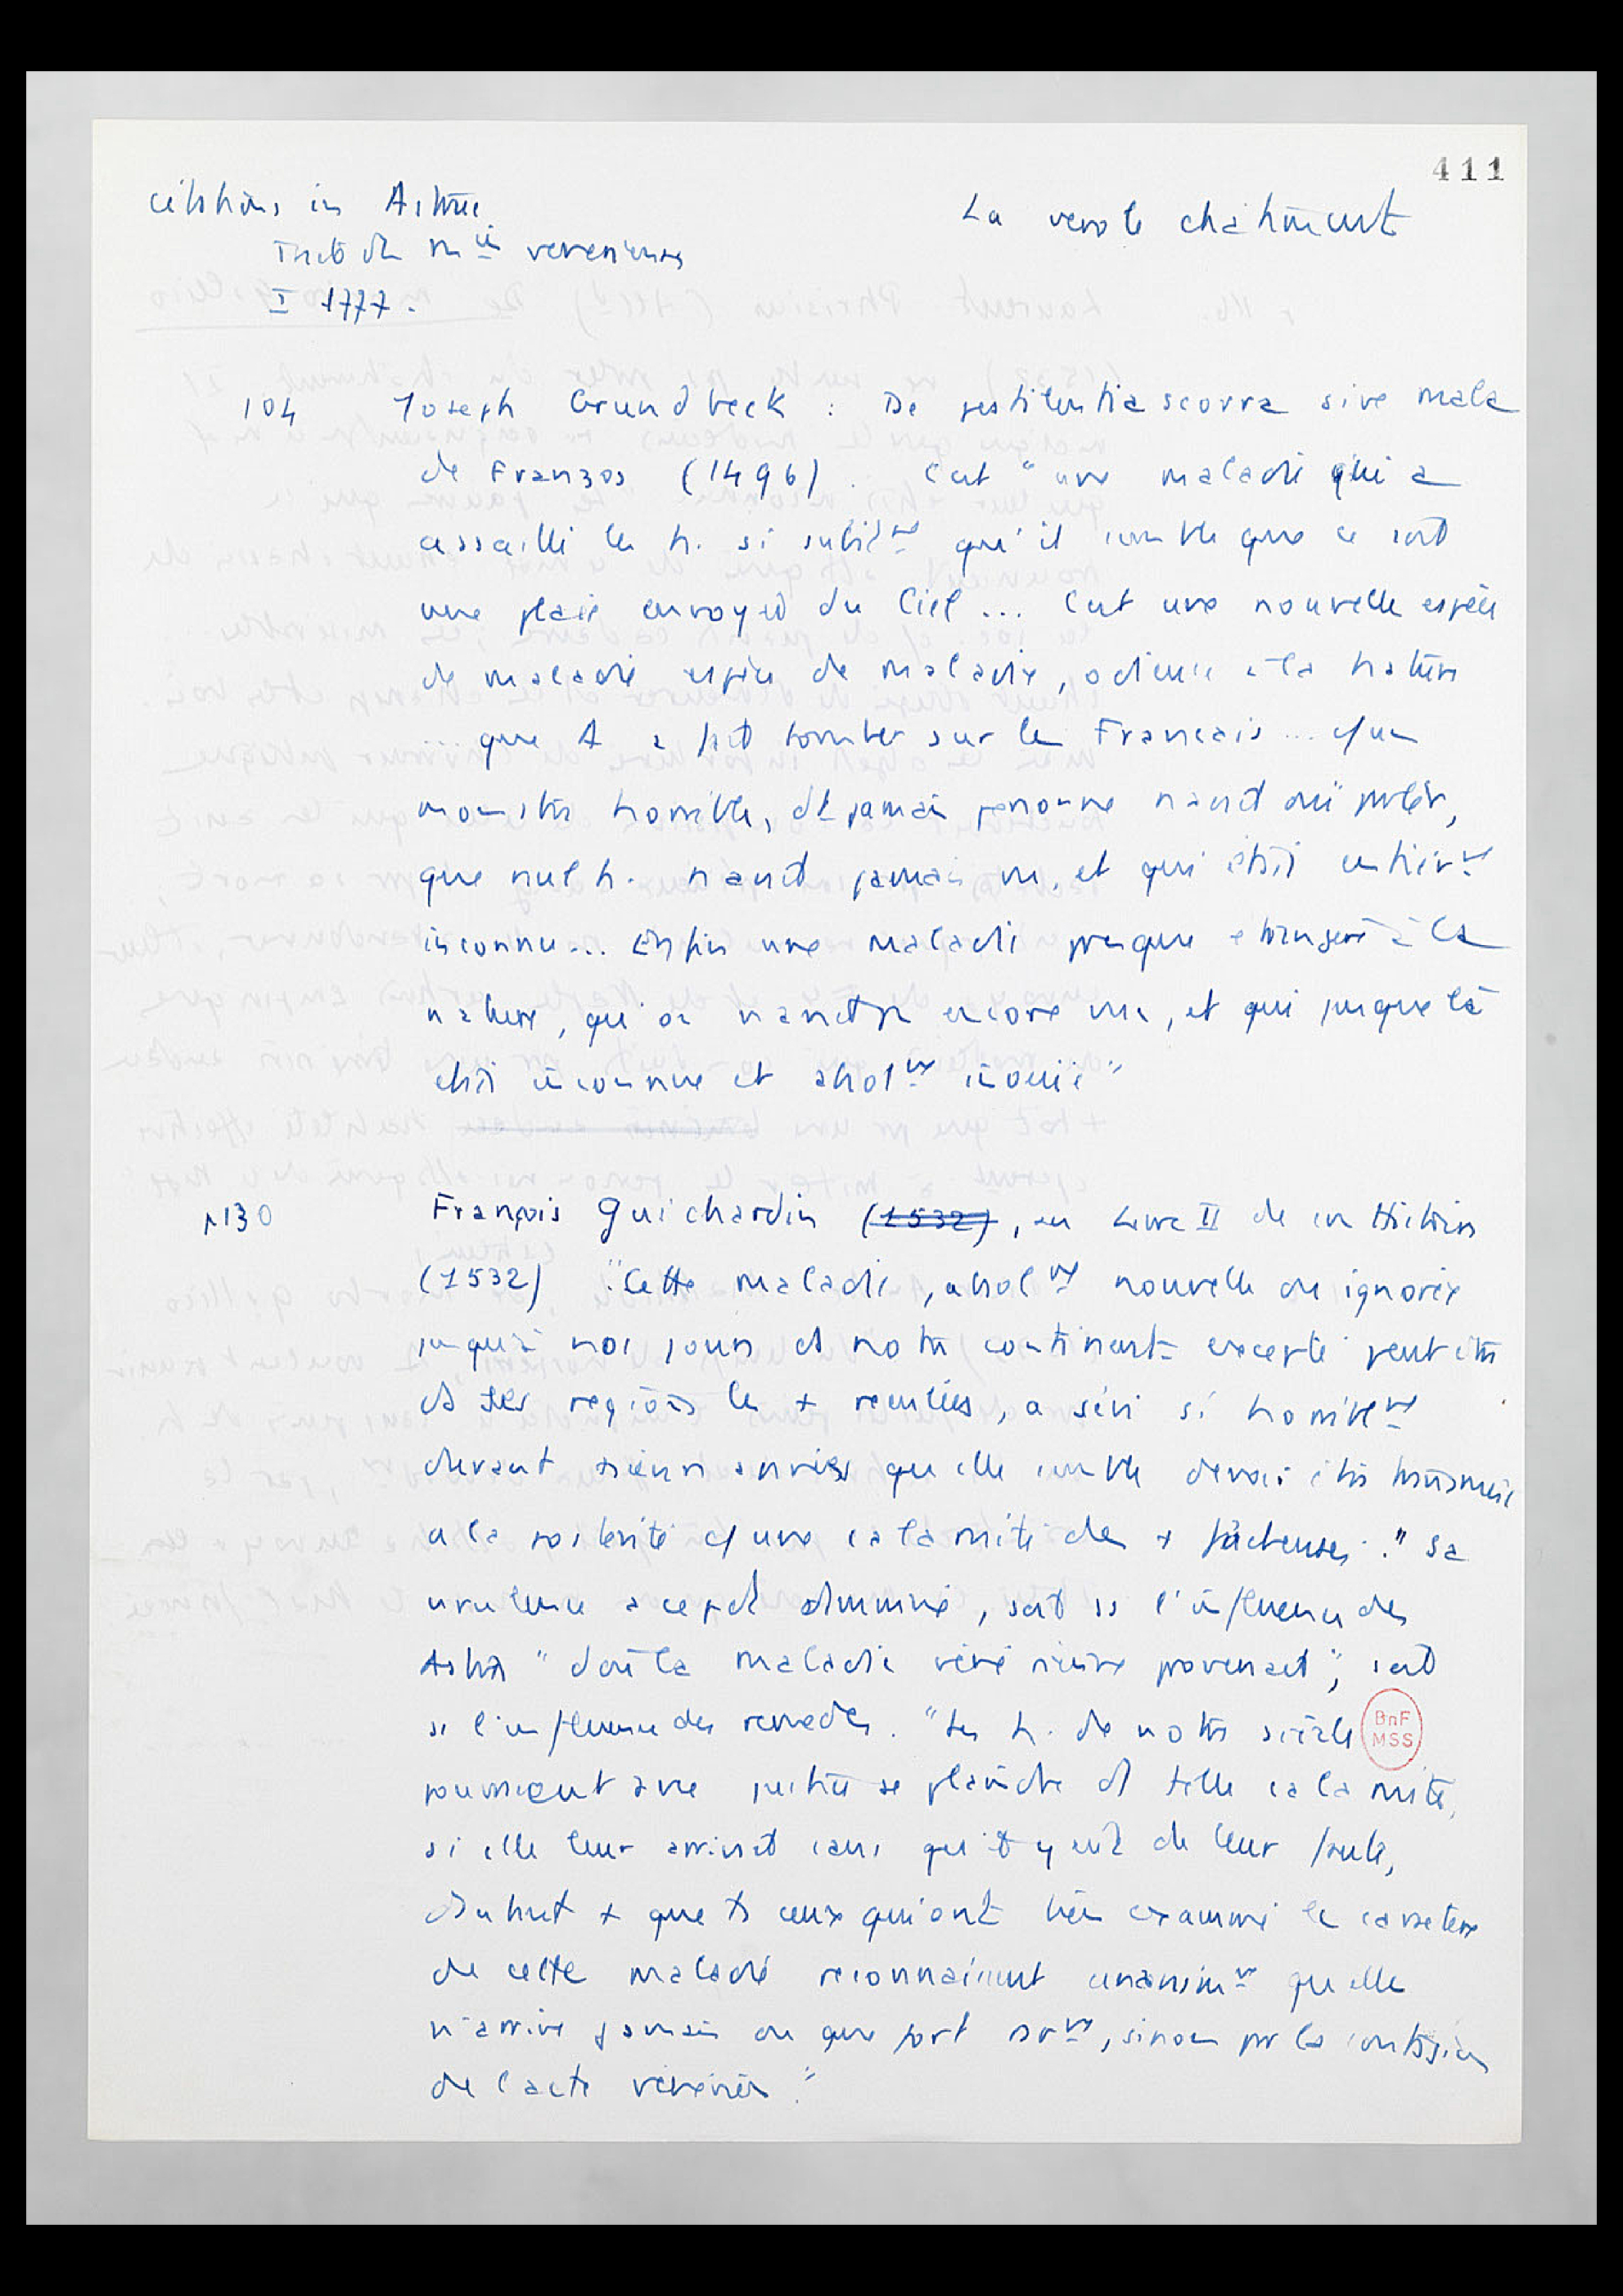 411
citations in Astruc
La verole châtiment
Traité des mies veneriennes
I 1777.
104 Joseph Grundbeck : De pestilentia scorra sive mala
de Franzos (1496). C'est "une maladie qui a
assailli les h. si subitmt qu'il semble que ce soit
une plaie envoyée du Ciel... C'est une nouvelle espèce
de maladie espèce de maladie, odieuse à la nature
... que a fait tomber sur les Francais...
monstre horrible, dt jamais personne navait ouï parler,
que nul h. navait jamais vu, et qui était entièrmt
inconnu... Enfin une maladie presque étrangère à la
nature, qu'on navait pas encore vue, et qui jusque là
était inconnue et absolmt inouïe"
p130 François Guichardin (1532), en Livre II de son Histoire
(1532) "Cette maladie, absolmt nouvelle ou ignorée
jusqu'à nos jours ds notre continent excepté peut être
ds ses régions les + reculées, a sévi si horriblemt
durant plusieurs années qu'elle semble devoir être transmise
a la postérité c/ une calamité des + fâcheuses." Sa
virulence a cepdt diminué, soit ss l'influence des
Astres "dont la maladie vénérienne provenait", soit
ss l'influence des remedes. "Les h. de notre siècle
BnF
MSS
pourraient avec justice se plaindre d'1 telle calamité,
si elle leur arrivait sans qu'il y eût de leur faute,
Dautant + que ts ceux qui ont bien examiné le caractere
de cette maladie reconnaissent unanimmt qu'elle
n'arrive jamais ou que fort rarmt, sinon par la contagion
de l'acte vénérien."